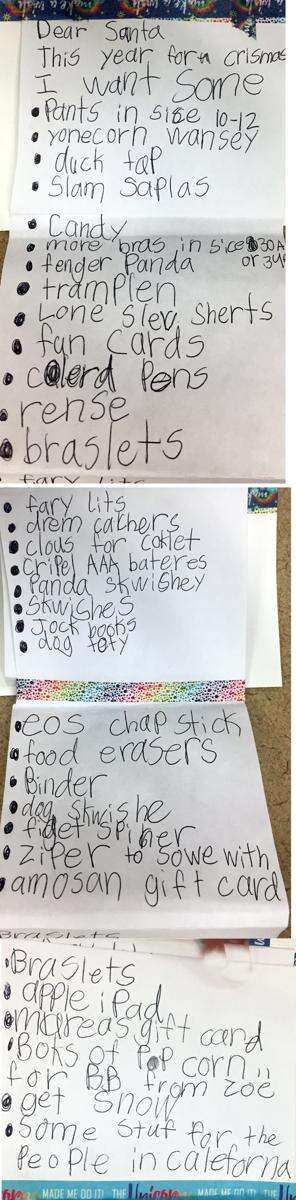 Dear Santa
This year for a crismas
I want Some
Pants in size 10-12
yonecorn wansey
duck tap
Slam Saplas
Candy
more bras in sice 30A
or 34
fenger Panda
tramplen
Lone slev sherts
fun cards
calerd Pens
rense
braslets
fary lits
drem cathers
clous for coklet
cripel AAA bateres
Panda skwishey
skwishes
Jock books
dog toty
eos chap stick
food erasers
Binder
dog skwishe
fidget spiner
ziper to sowe with
amosan gift card
Braslets
Braslets
apple iPad
mareas gift card
Boks of pop corn
for BB from zoe
get snow
some stuf for the
People in caleforna
MADE ME DO IT! THE Unicorn MADE ME DO IT! THE